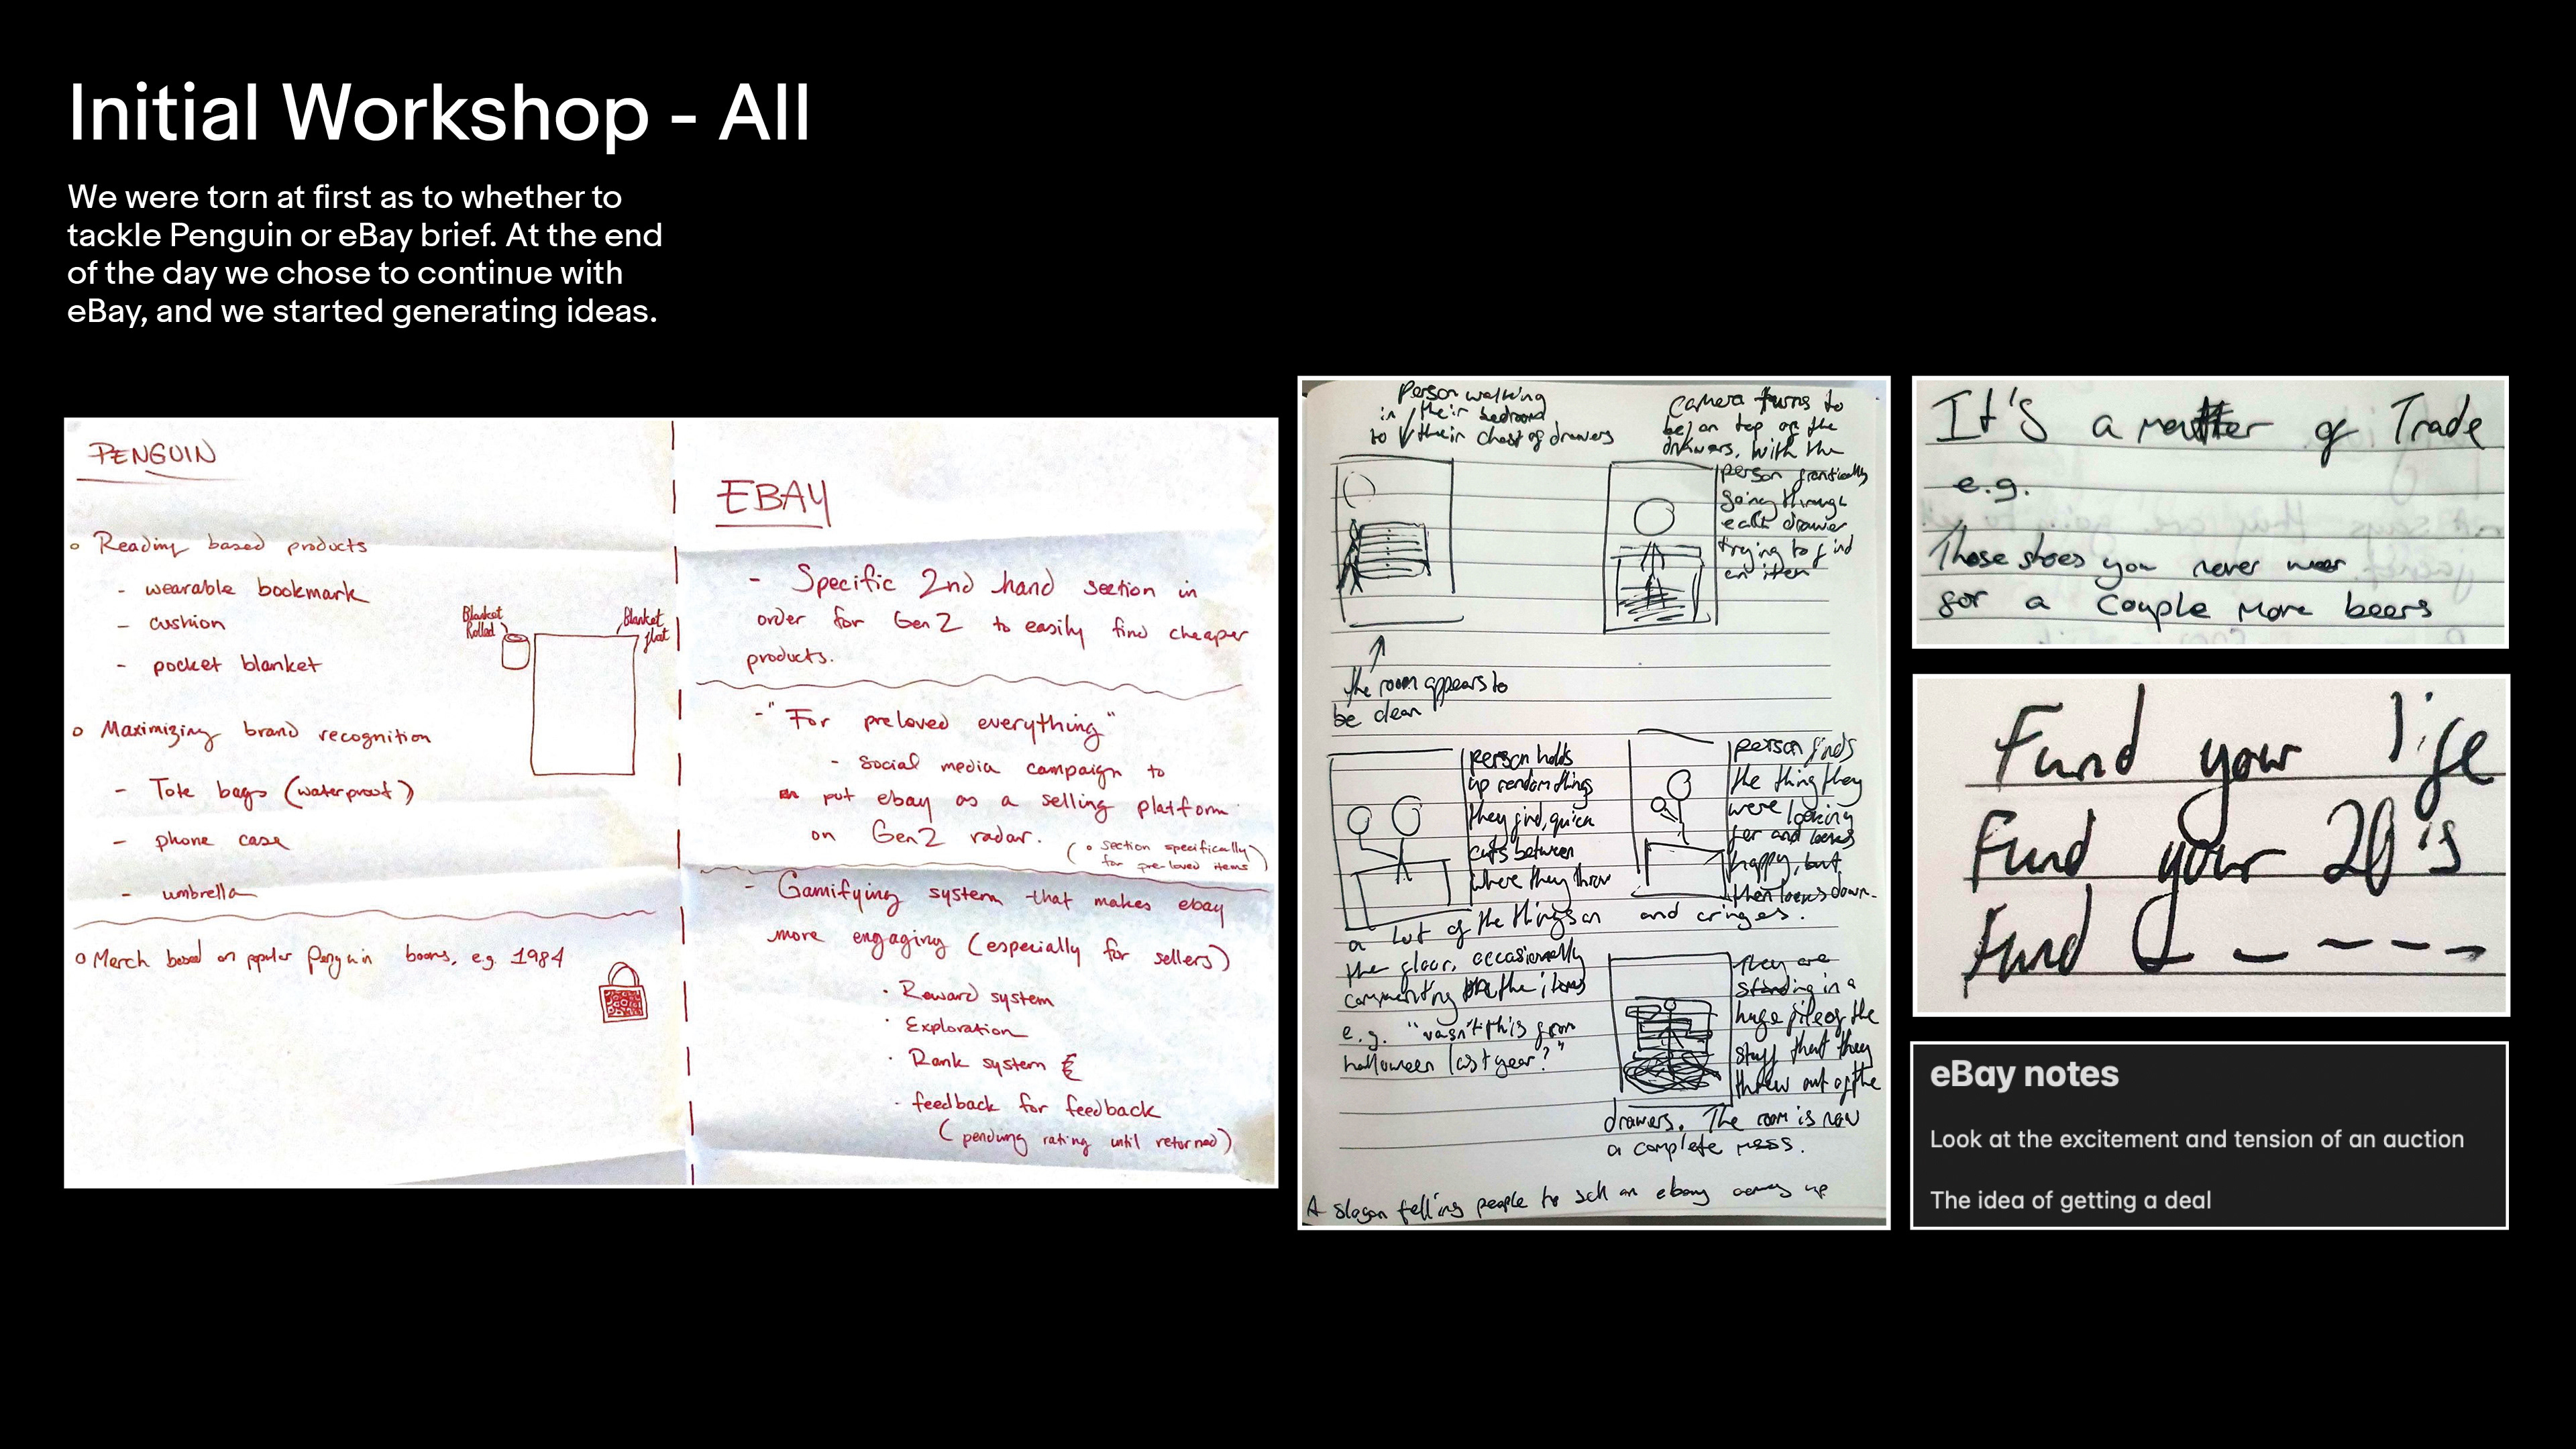 Initial Workshop - All
We were torn at first as to whether to
tackle Penguin or eBay brief. At the end
of the day we chose to continue with
eBay, and we started generating ideas.
PENGUIN
Reading based products
- wearable bookmark
- cushion
- pocket blanket
Blanket
Rolled
Blanket
flat
Maximizing brand recognition
- Tote bags (waterproof)
- phone case
- umbrella
Merch based on popular Penguin books, e.g. 1984
EBAY
- Specific 2nd hand section in
order for Gen Z to easily find cheaper
products.
- "For preloved everything"
- Social media campaign to
put ebay as a selling platform
on Gen Z radar.
(• section specifically
for pre-loved items)
- Gamifying system that makes ebay
more engaging (especially for sellers)
· Reward system
· Exploration
· Rank system
· feedback for feedback
(pending rating until returned)
Person walking
in their bedroom
to their chest of drawers
the room appears to
be clean
Camera turns to
be on top of the
drawers, with the
person frantically
going through
each drawer
trying to find
an item
person holds
up random things
they find, quick
cuts between
where they throw
a lot of the things on
the floor, occasionally
commenting on the items
e.g. "wasn't this from
halloween last year?"
person finds
the thing they
were looking
for and looks
happy, but
then looks down
and cringes.
They are
standing in a
huge pile of the
stuff that they
threw out of the
drawers. The room is now
a complete mess.
A slogan telling people to sell on ebay comes up
It's a matter of Trade
e.g.
Those shoes you never wear
for a couple more beers
Fund your life
Fund your 20's
Fund
eBay notes
Look at the excitement and tension of an auction
The idea of getting a deal